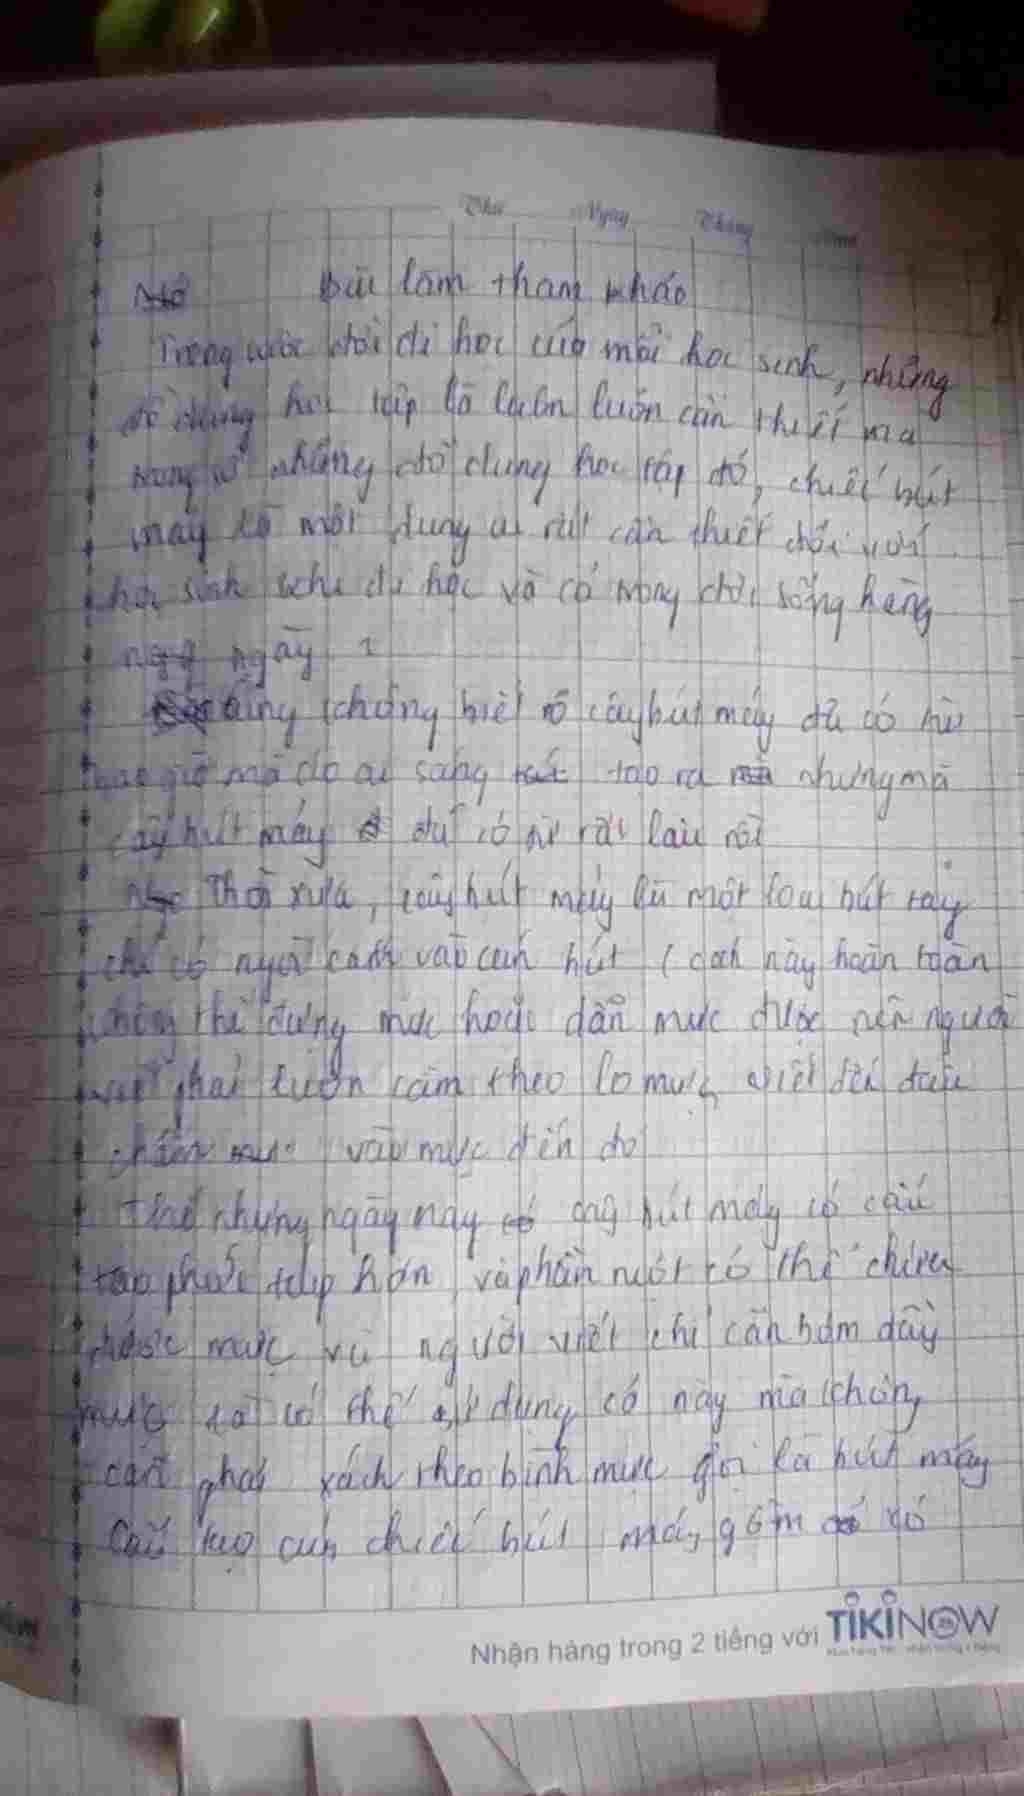 Thứ Ngày Tháng Năm
Bài làm tham khảo
Trong cuộc đời đi học của mỗi học sinh, những
đồ dùng học tập là luôn luôn cần thiết mà
trong số những đồ dùng học tập đó, chiếc bút
máy là một dụng cụ rất cần thiết đối với
học sinh khi đi học và có trong đời sống hằng
ngày
chẳng biết rõ cây bút máy đã có từ
bao giờ mà do ai sáng tạo ra nhưng mà
cây bút máy đã có từ rất lâu rồi
Thời xưa, cây bút máy là một loại bút
chỉ có ngòi cắm vào cán bút (cách này hoàn toàn
không thể đựng mực hoặc dẫn mực được nên người
viết phải luôn cầm theo lọ mực viết đến đâu
chấm vào mực đến đó
Thế nhưng ngày nay cây bút máy có cấu
tạo phức tạp hơn và phần ruột có thể chứa
được mực và người viết chỉ cần bơm đầy
mực là có thể sử dụng cả ngày mà chẳng
cần phải xách theo bình mực gọi là bút máy
Cấu tạo của chiếc bút máy gồm có
Nhận hàng trong 2 tiếng với TIKINOW